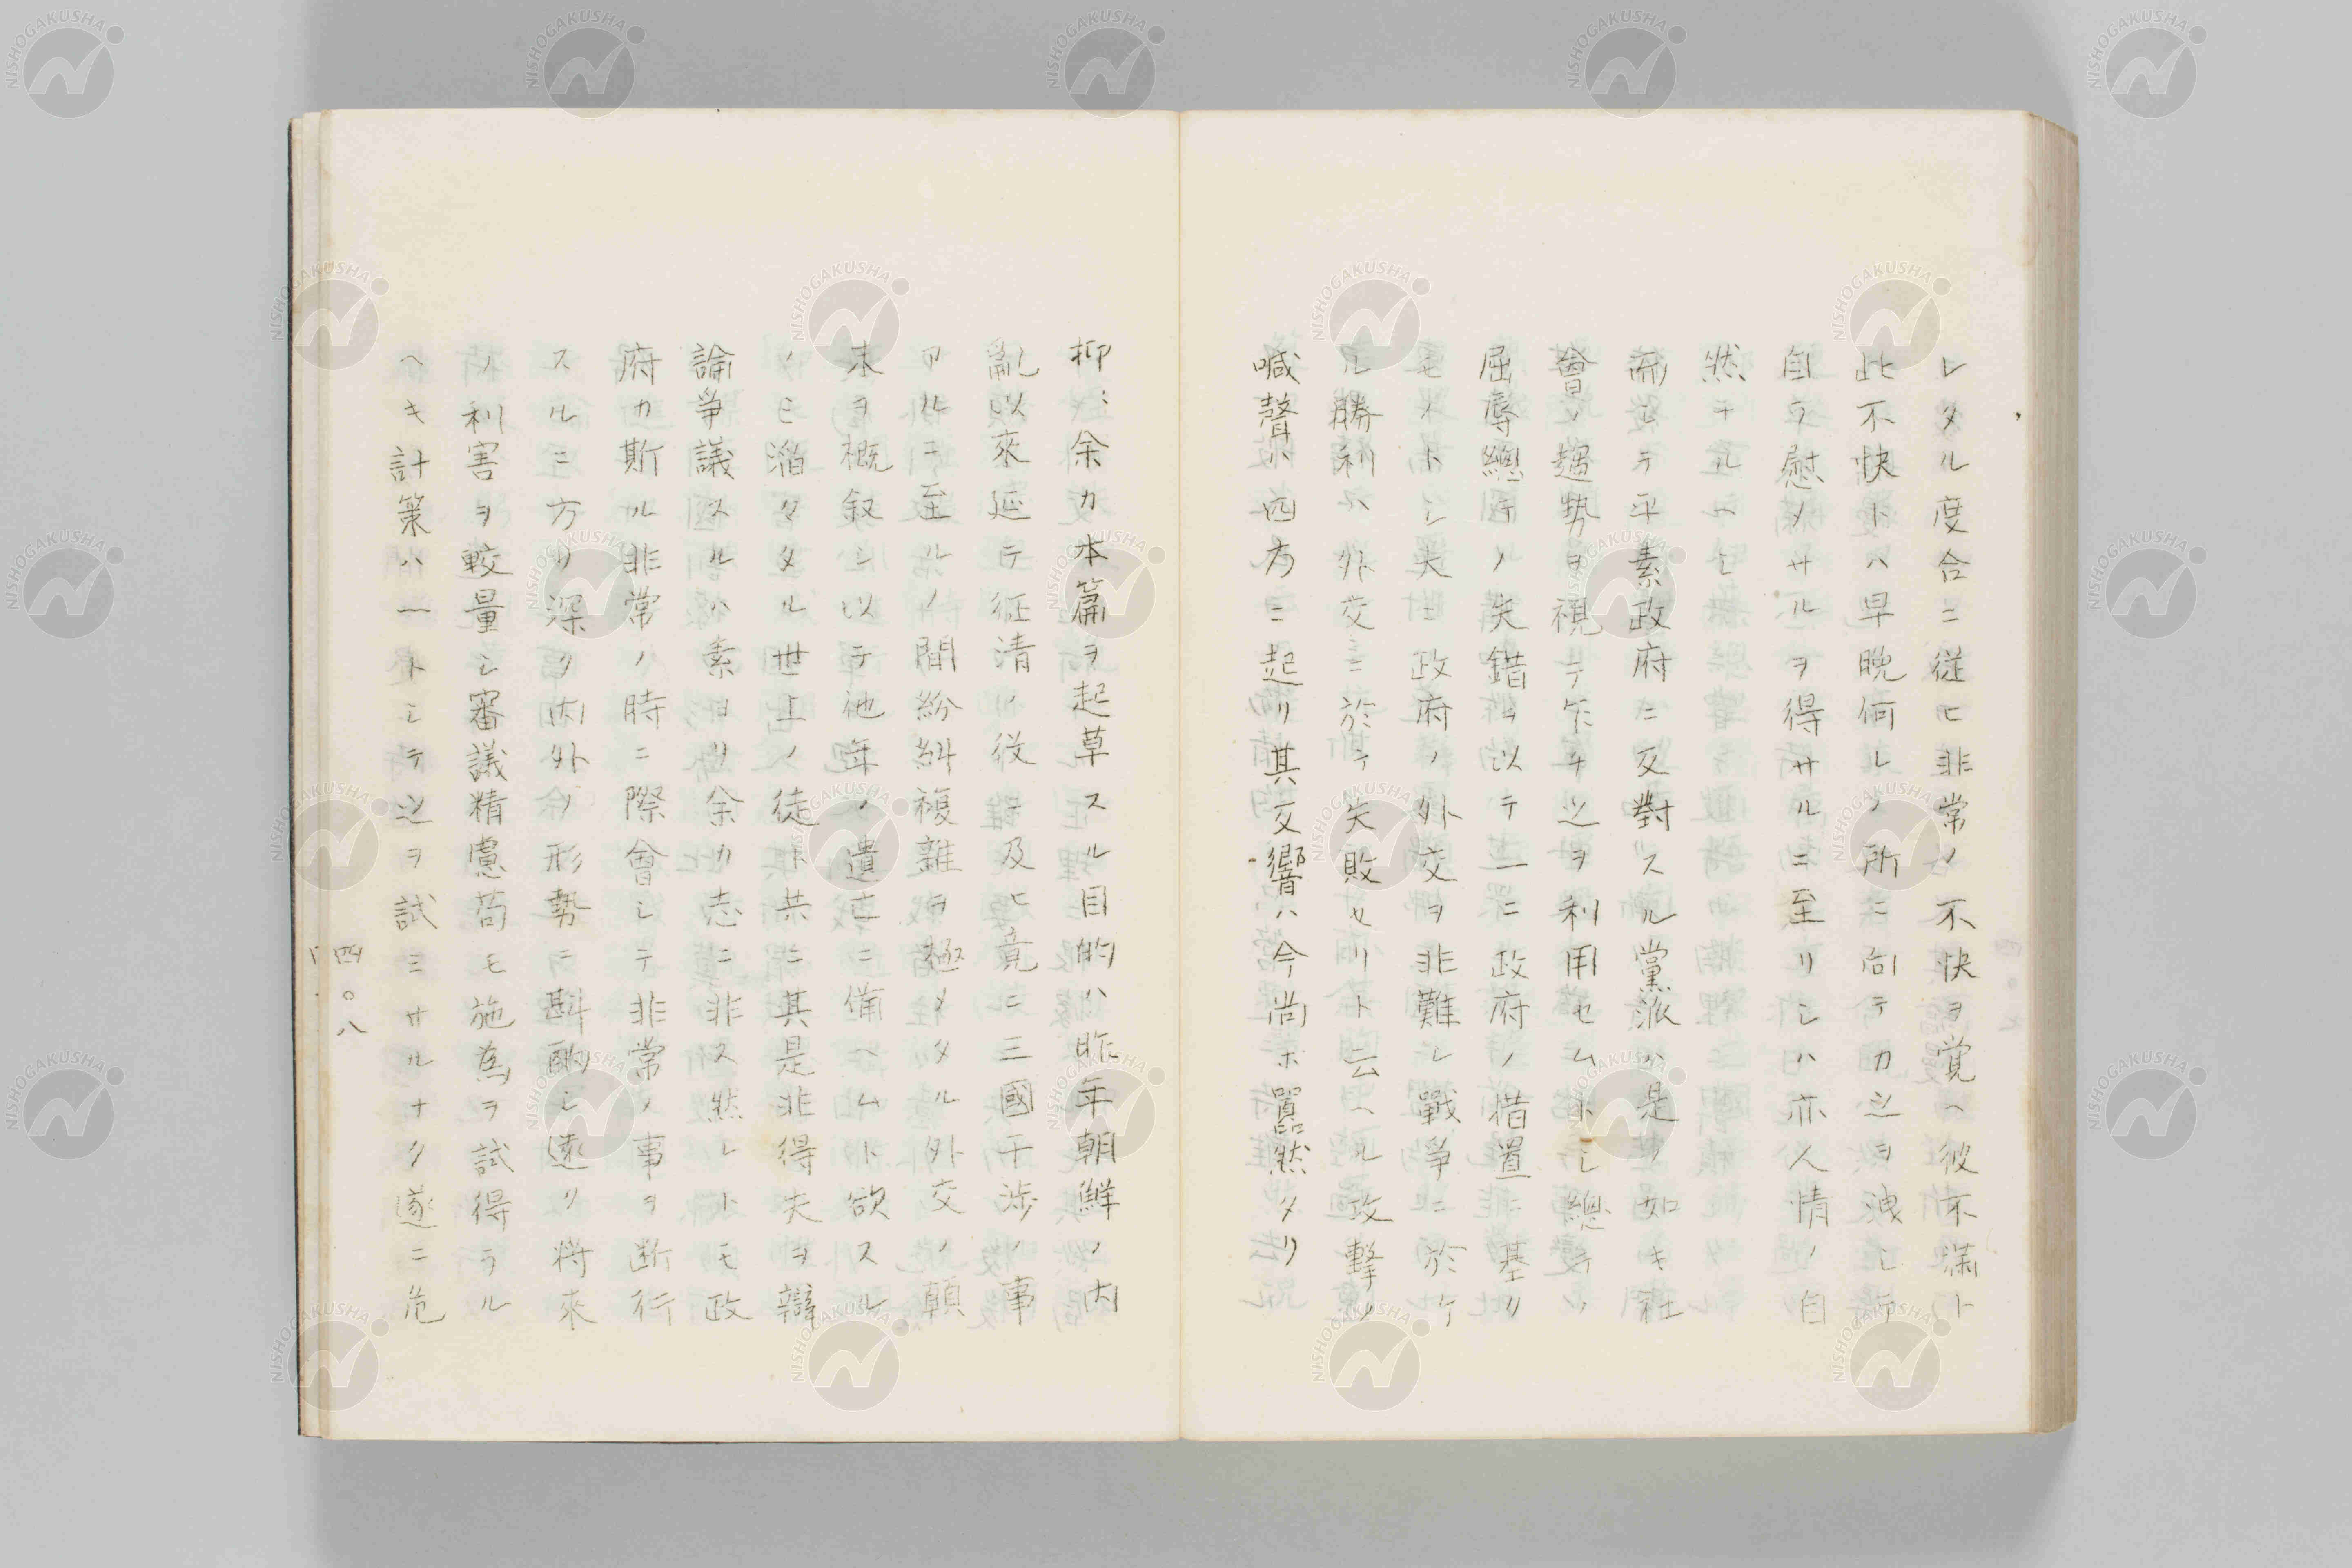 レタル度合ニ従ヒ非常ノ不快ヲ覚ヘ彼不満ト
此不快トハ早晩何レノ所ニ向テカ之ヲ洩シテ
自ラ慰メサルヲ得サルニ至リシハ亦人情ノ自
然ナルヘシ
而シテ平素政府ニ反對スル黨派ハ是ノ如キ社
會ノ趨勢ヲ視テ乍チ之ヲ利用セムトシ總テノ
屈辱總テノ失錯ヲ以テ一ニ政府ノ措置ニ基ク
モノトシ大ニ政府ノ外交ヲ非難シ戰爭ニ於ケ
ル勝利ハ外交ニ於テ失敗セリト云ヘル攻撃ノ
喊聲ハ四方ニ起リ其反響ハ今尚ホ囂然タリ
抑〻余カ本篇ヲ起草スル目的ハ昨年朝鮮ノ内
亂以來延テ征清ノ役ニ及ヒ竟ニ三國干渉ノ事
アルニ至ルノ間紛糾複雜ヲ極メタル外交ノ顛
末ヲ概叙シ以テ他年ノ遺亡ニ備ヘムト欲スル
ノミ滔々タル世上ノ徒ト共ニ其是非得失ヲ辯
論爭議スルハ素ヨリ余カ志ニ非ス然レトモ政
府カ斯ル非常ノ時ニ際會シテ非常ノ事ヲ断行
スルニ方リ深ク内外ノ形勢ニ斟酌シ遠ク将來
ノ利害ヲ較量シ審議精慮苟モ施為ヲ試得ラル
ヘキ計策ハ一トシテ之ヲ試ミサルナク遂ニ危
四〇八